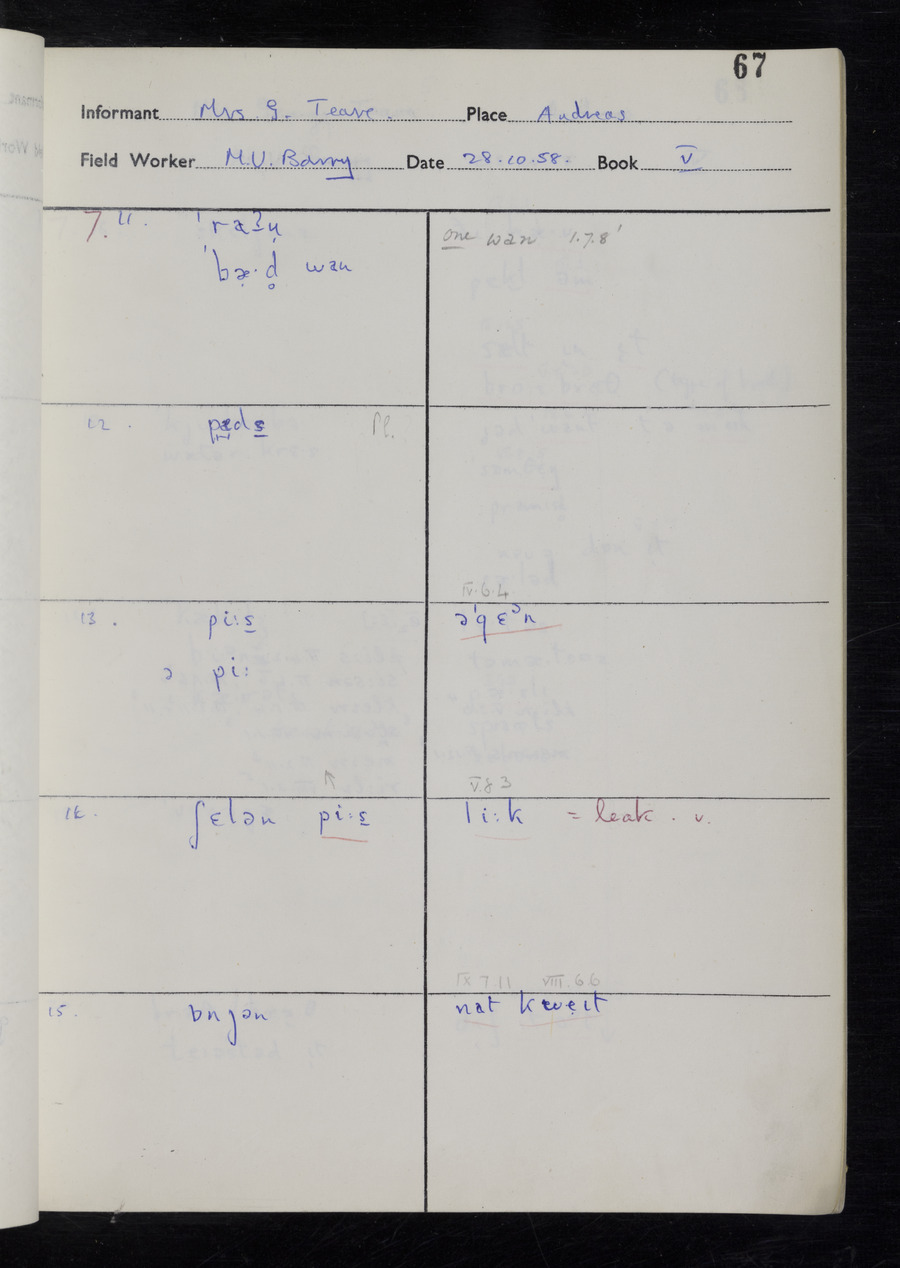 67
Informant Mrs G. Teare. Place Andreas
Field Worker M.V. Barry Date 28.10.58. Book V
7. 11. ˈræʔn̩
ˈbæ̣·d̥ wan
one wan 1.7.8'
12. pæds Pl.
13. pi:s
ə pi:
IV.6.4
əˈgɛᵊn
14. ʃɛlən pi:s
V.8 3
li:k = leak. v.
15. ɒnjən
IX 7.11 VIII.6 6
nat kweɪt